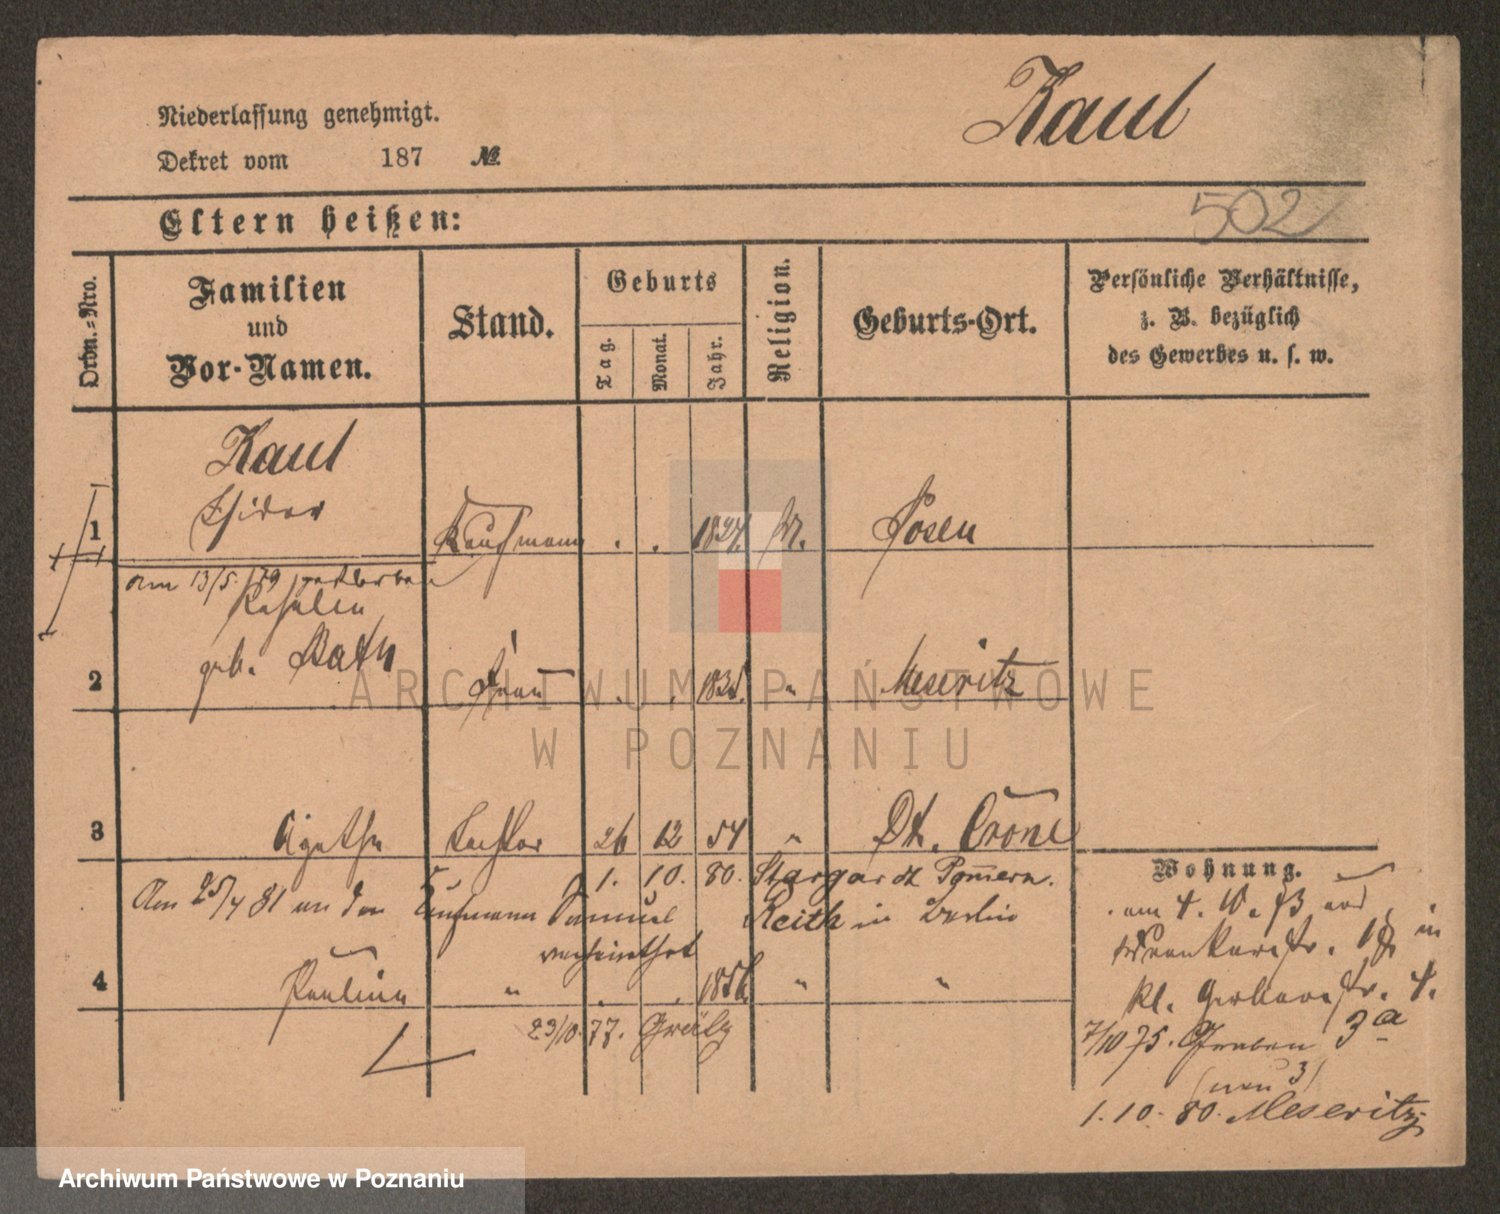 Niederlassung genehmigt.
Kaul
Dekret vom 187 №
Eltern heißen:
502
Ordn.=Nro.
Familien und Vor-Namen.
Stand.
Geburts
Tag.
Monat.
Jahr.
Religion.
Geburts-Ort.
Persönliche Verhältnisse,
z. B. bezüglich
des Gewerbes u. s. w.
Kaul
1 Isidor Kaufmann . . 1827. M. Posen
am 13/5. 79 gestorben
Rosalie
2 geb. Bath Frau . . " Meseritz
3 Agathe Tochter 26 12 54 " Dt. Crone
1. 10. 80. Stargardt Pomern.
Am 25/4 81 an den Kaufmann Samuel Reith in Berlin
verheirathet
4 Pauline " . . 1856. " "
23/10. 77. Grätz
Wohnung.
am 4. 10. 73
in
kl. Gerberstr. 4.
7/10 75. Graben 3a
(neu 3)
1. 10. 80. Meseritz
ARCHIWUM PAŃSTWOWE
W POZNANIU
Archiwum Państwowe w Poznaniu